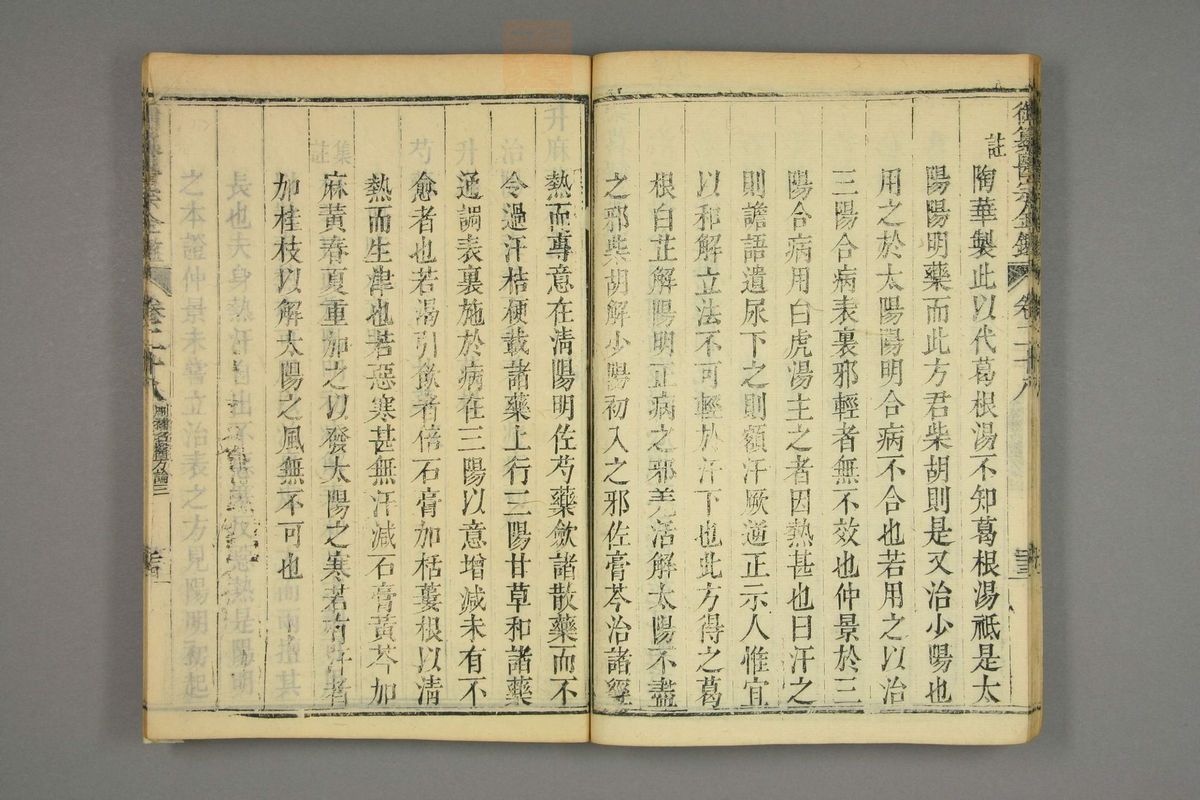 御纂醫宗金鑑 卷二十八
註
陶華製此以代葛根湯不知葛根湯祗是太
陽陽明藥而此方君柴胡則是又治少陽也
用之於太陽陽明合病不合也若用之以治
三陽合病表裏邪輕者無不效也仲景於三
陽合病用白虎湯主之者因熱甚也曰汗之
則譫語遺尿下之則額汗厥逆正示人惟宜
以和解立法不可輕於汗下也此方得之葛
根白芷解陽明正病之邪羌活解太陽不盡
之邪柴胡解少陽初入之邪佐膏芩治諸經
熱而專意在清陽明佐芍藥斂諸散藥而不
令過汗桔梗載諸藥上行三陽甘草和諸藥
通調表裏施於病在三陽以意增減未有不
愈者也若渴引飲者倍石膏加栝蔞根以清
熱而生津也若惡寒甚無汗減石膏黃芩加
麻黃春夏重加之以發太陽之寒若有汗者
加桂枝以解太陽之風無不可也
卷二十八
刪補名醫方論三